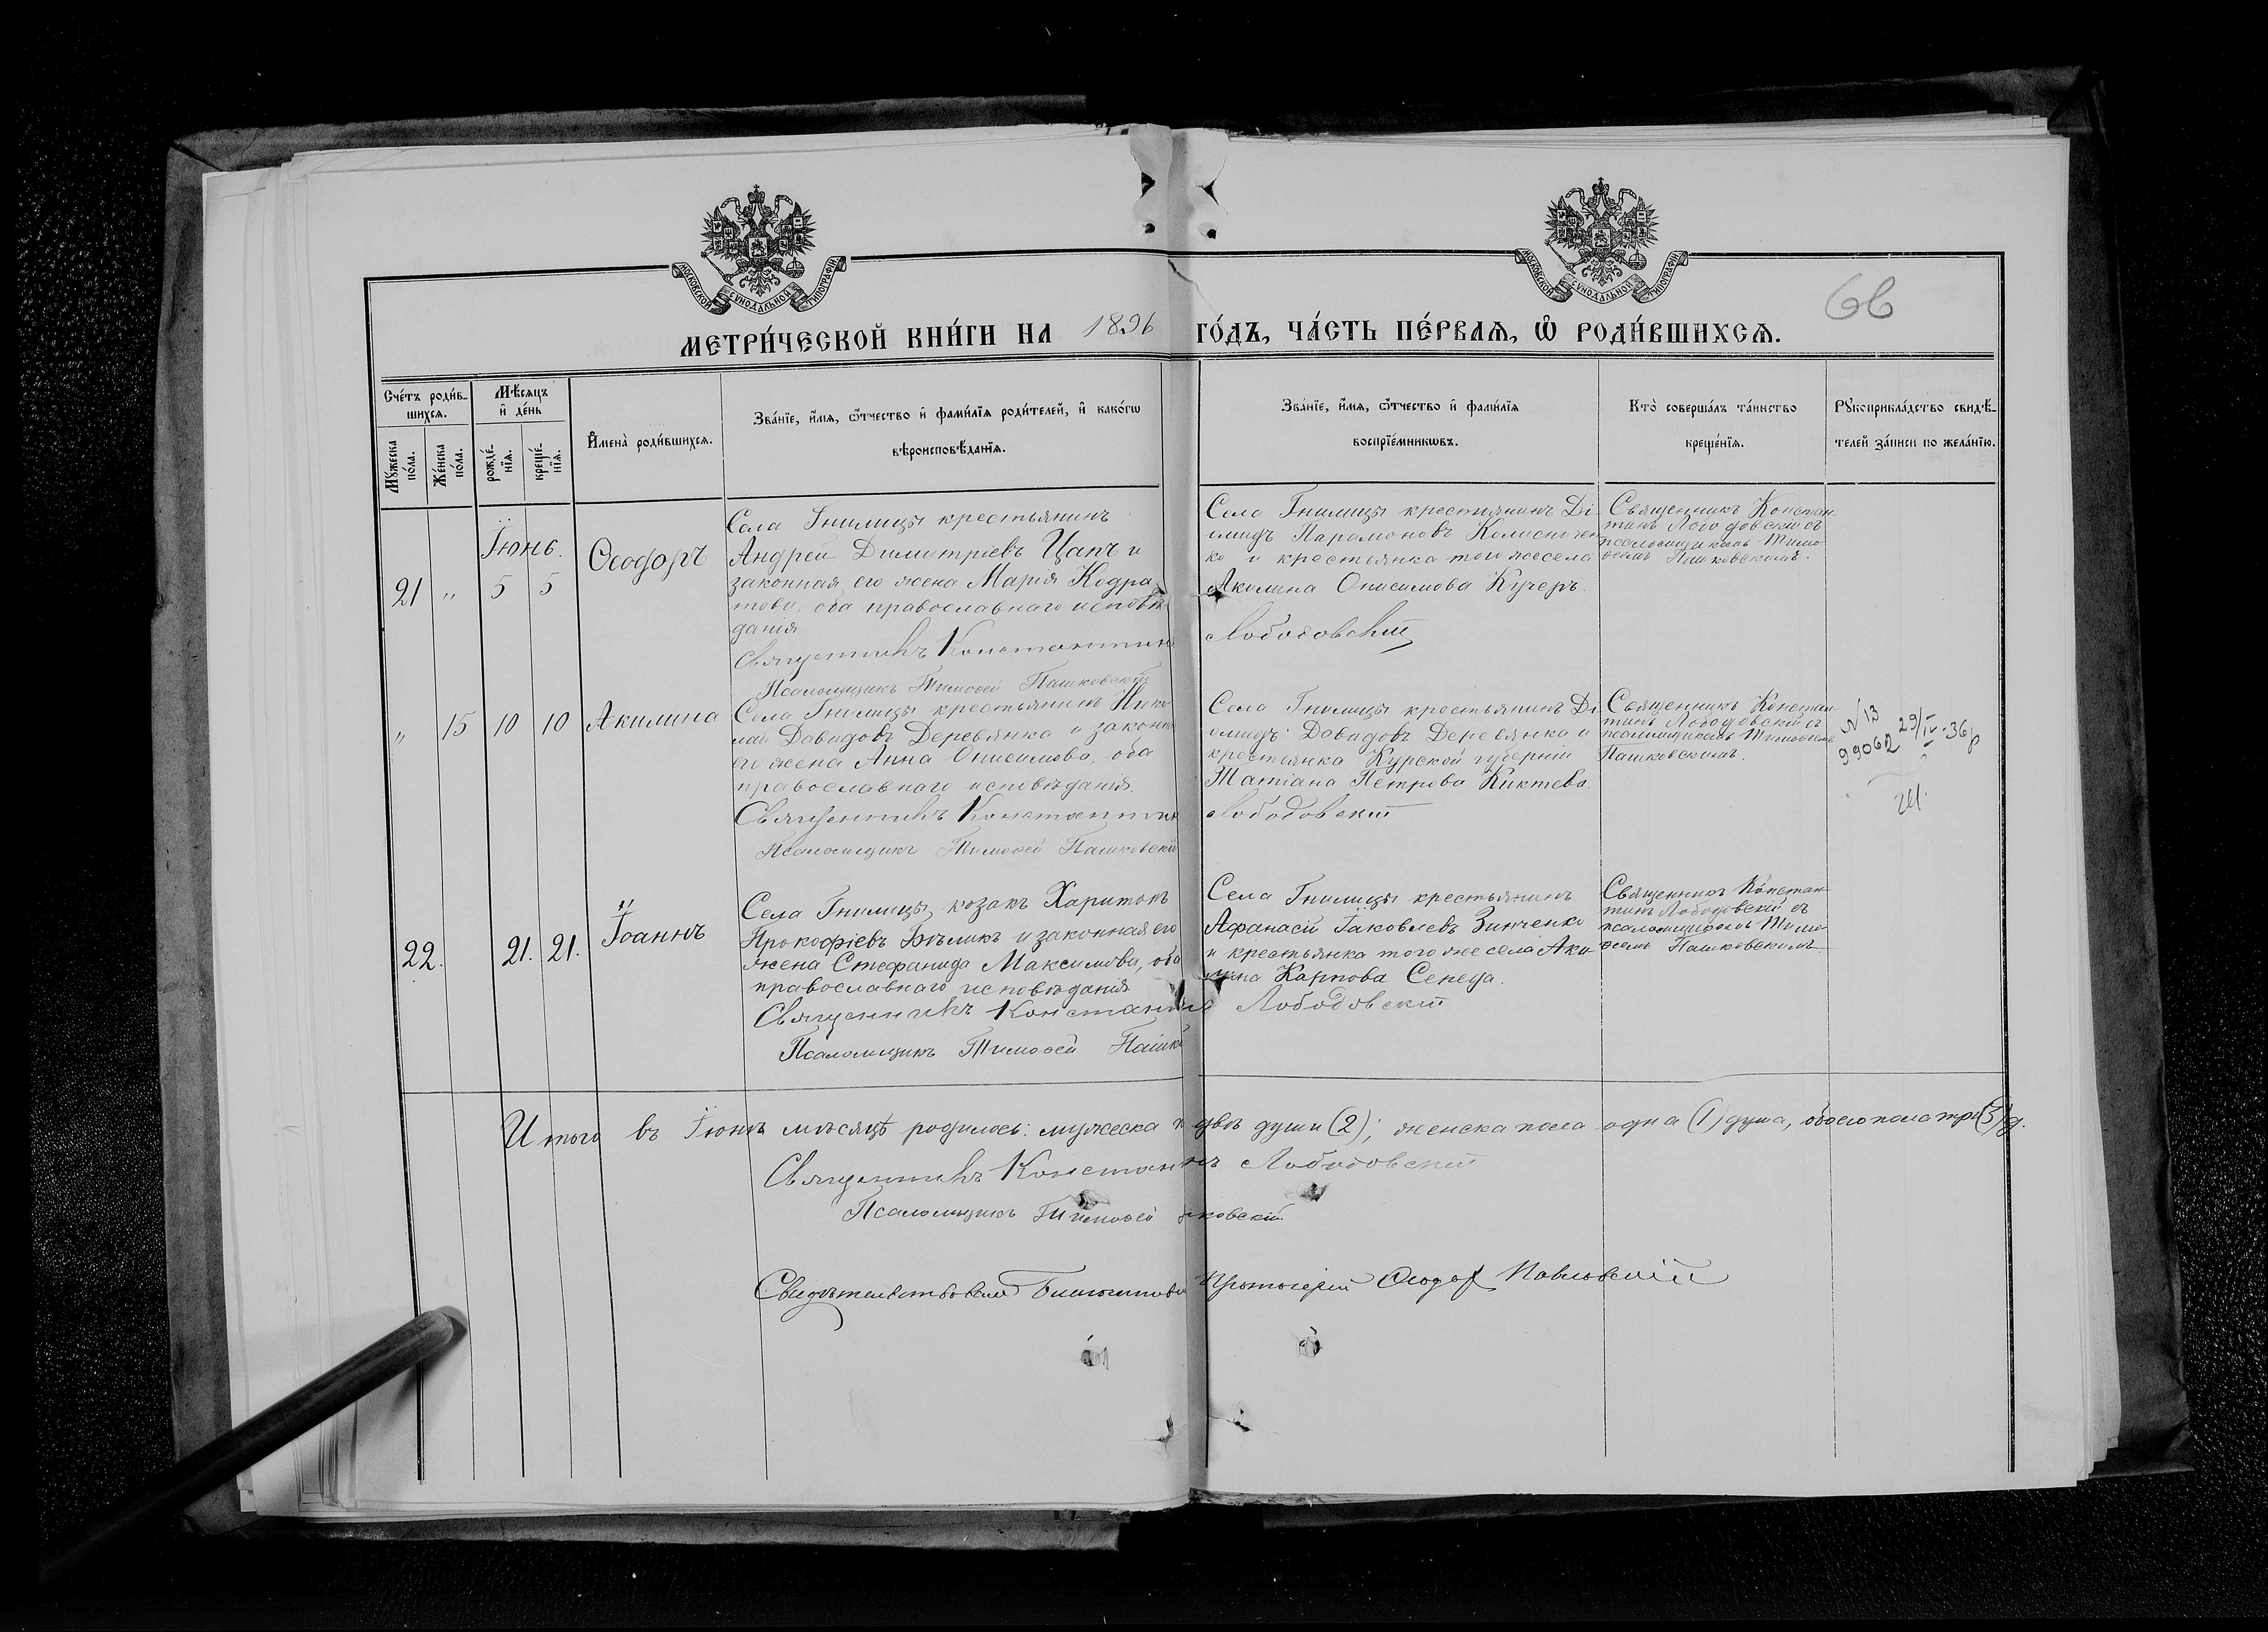 МОСКОВСКОЙ СѴНОДАЛЬНОЙ ТИПОГРАФІИ
МОСКОВСКОЙ СѴНОДАЛЬНОЙ ТИПОГРАФІИ
66
МЕТРИ́ЧЕСКОЙ КНИ́ГИ НА 1896 ГО́ДЪ, ЧА́СТЬ ПЕ́РВАѦ, Ѡ҆ РОДИ́ВШИХСѦ.
Сче́тъ роди́в-
шихсѧ.
Мѣ́сѧцъ
и҆ де́нь
Мꙋ́жеска
по́ла.
Же́нска
по́ла.
рожде́-
нїѧ.
креще́-
нїѧ.
И҆мена̀ роди́вшихсѧ.
Зва́нїе, и҆́мѧ, ѻ҆́тчество и҆ фами́лїѧ роди́телей, и҆ како́гѡ
вѣроисповѣ́данїѧ.
Зва́нїе, и҆́мѧ, ѻ҆́тчество и҆ фами́лїѧ
воспрїе́мникѡвъ.
Кто̀ соверша́лъ та́инство
креще́нїѧ.
Рꙋкоприкла́дство свидѣ́-
телей за́писи по жела́нїю.
Іюнь.
21 " 5 5
Ѳеодоръ
Села Гнилицы крестьянинъ
Андрей Димитріевъ Цапъ и
законная его жена Марія Кодра
това, оба православнаго исповѣ
данія
Священникъ Константинъ Лободовскій
Псаломщикъ Тимоѳей Пашковскій
Села Гнилицы крестьянинъ Ді
омидъ Парамоновъ Колисничен
ко и крестьянка того же села
Акилина Онисимова Кучеръ.
Священникъ Констан
тинъ Лободовскій съ
псаломщикомъ Тимо
ѳеемъ Пашковскимъ.
" 15 10 10
Акилина
Села Гнилицы крестьянинъ Нико
лай Давидовъ Деревянка и законн
его жена Анна Онисимова, оба
православнаго исповѣданія.
Священникъ Константинъ Лободовскій
Псаломщикъ Тимоѳей Пашковскій
Села Гнилицы крестьянинъ Ді
омидъ Давидовъ Деревянка и
крестьянка Курской губерніи
Татіана Петрова Киктева.
Священникъ Констан
тинъ Лободовскій съ
псаломщикомъ Тимоѳеемъ
Пашковскимъ.
N 13
99062 29/IV-36р
22. 21. 21.
Іоаннъ
Села Гнилицы, козакъ Харитонъ
Прокофіевъ Бѣликъ и законная его
жена Стефанида Максимова, оба
православнаго исповѣданія
Священникъ Константинъ Лободовскій
Псаломщикъ Тимоѳей Пашк
Села Гнилицы крестьянинъ
Афанасій Іаковлевъ Зинченко
и крестьянка того же села Аки
лина Карпова Середа.
Священникъ Констан
тинъ Лободовскій съ
псаломщикомъ Тимо
ѳеемъ Пашковскимъ
Итого въ Іюнѣ мѣсяцѣ родилось: мужеска п двѣ души (2); женска пола одна (1) душа, обоего пола три (3) д.
Священникъ Константинъ Лободовскій
Псаломщикъ Тимоѳей ковскій
Свидѣтельствовалъ Благочинный Протоіерей Ѳеодоръ Павловскій